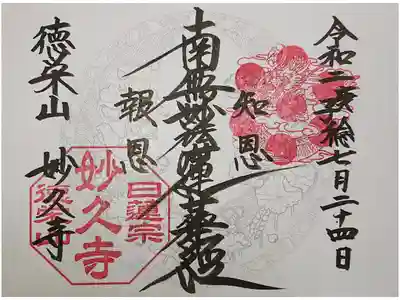 令和二庚子年七月二十四日
知恩
南無妙法蓮華経
報恩
徳栄山 妙久寺
日蓮宗
妙久寺
徳栄山